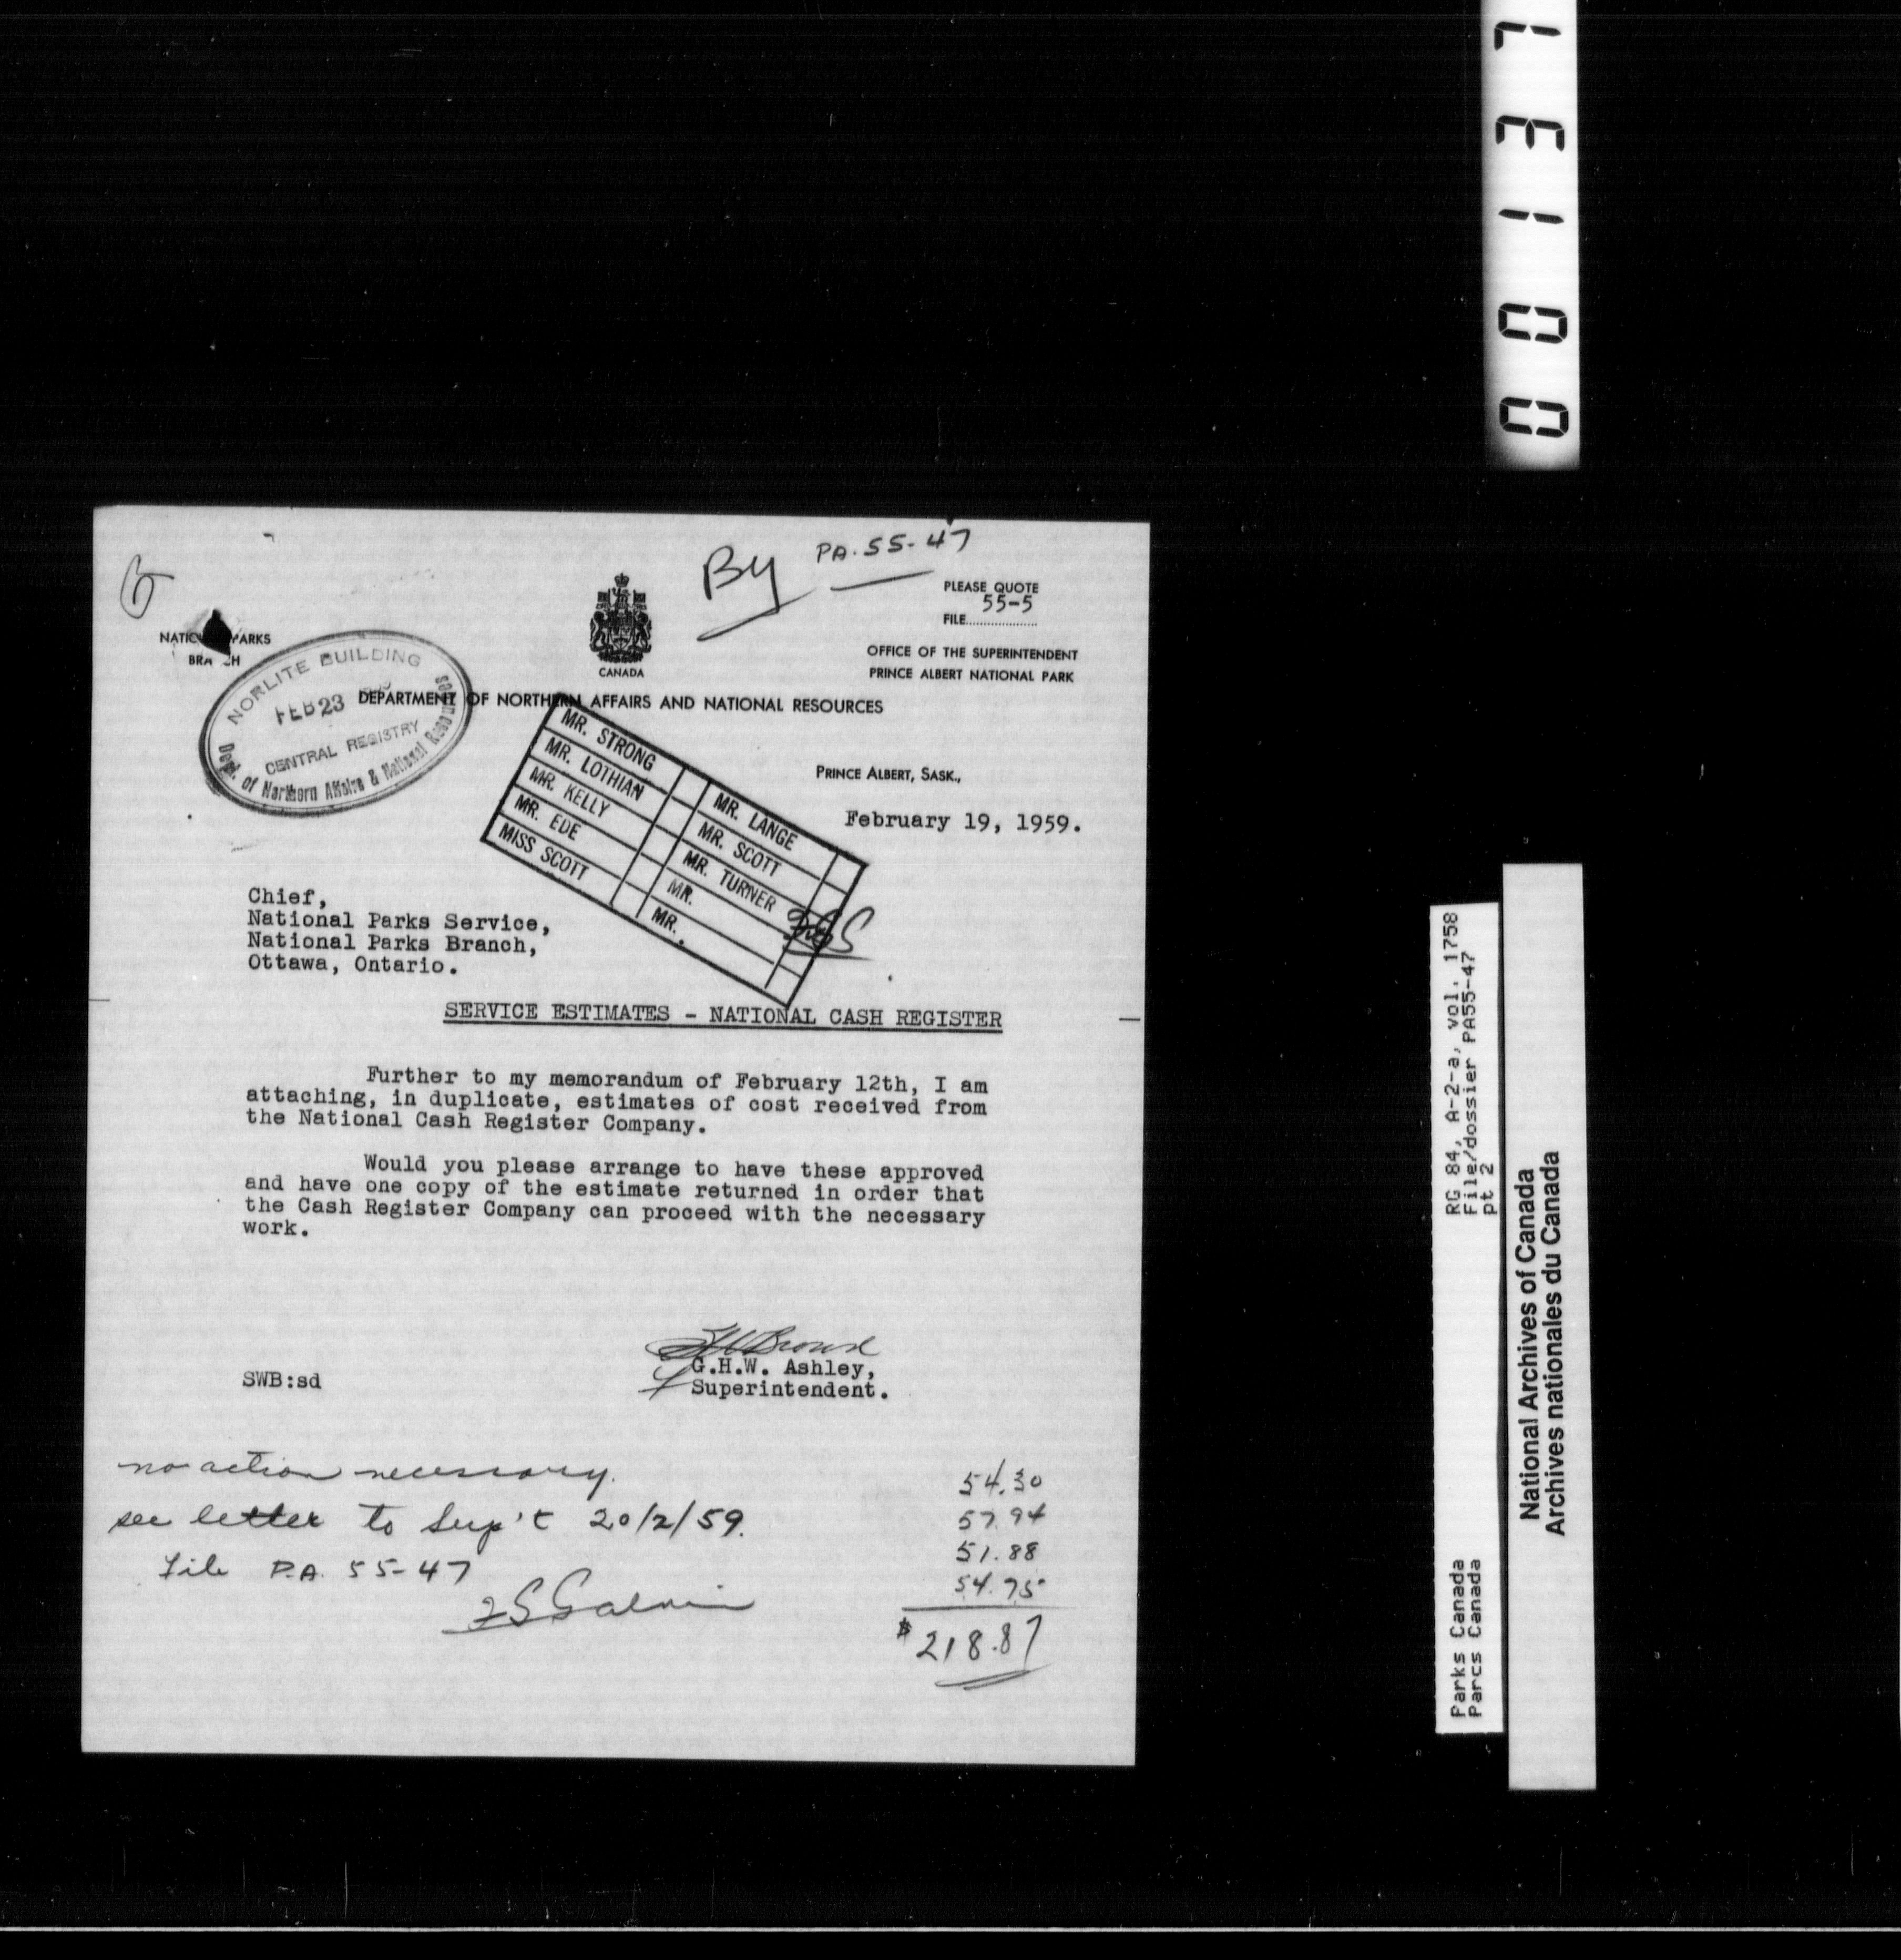 By PA. 55-47
PLEASE QUOTE
55-5
FILE
NATIONAL PARKS
BRANCH
CANADA
OFFICE OF THE SUPERINTENDENT
PRINCE ALBERT NATIONAL PARK
DEPARTMENT OF NORTHERN AFFAIRS AND NATIONAL RESOURCES
NORLITE BUILDING
FEB 23
CENTRAL REGISTRY
Dept. of Northern Affairs & National Resources
MR. STRONG
MR. LOTHIAN
MR. KELLY
MR. EDE
MISS SCOTT
MR. LANGE
MR. SCOTT
MR. TURNER
MR.
MR.
PRINCE ALBERT, SASK.,
February 19, 1959.
Chief,
National Parks Service,
National Parks Branch,
Ottawa, Ontario.
SERVICE ESTIMATES - NATIONAL CASH REGISTER
Further to my memorandum of February 12th, I am
attaching, in duplicate, estimates of cost received from
the National Cash Register Company.
Would you please arrange to have these approved
and have one copy of the estimate returned in order that
the Cash Register Company can proceed with the necessary
work.
G.H.W. Ashley,
Superintendent.
SWB:sd
no action necessary.
see letter to Sup't 20/2/59.
File P.A. 55-47
54.30
57.94
51.88
54.75
$218.87
00137
RG 84, A-2-a, vol. 1758
File/dossier PA55-47
pt 2
Parks Canada
Parcs Canada
National Archives of Canada
Archives nationales du Canada